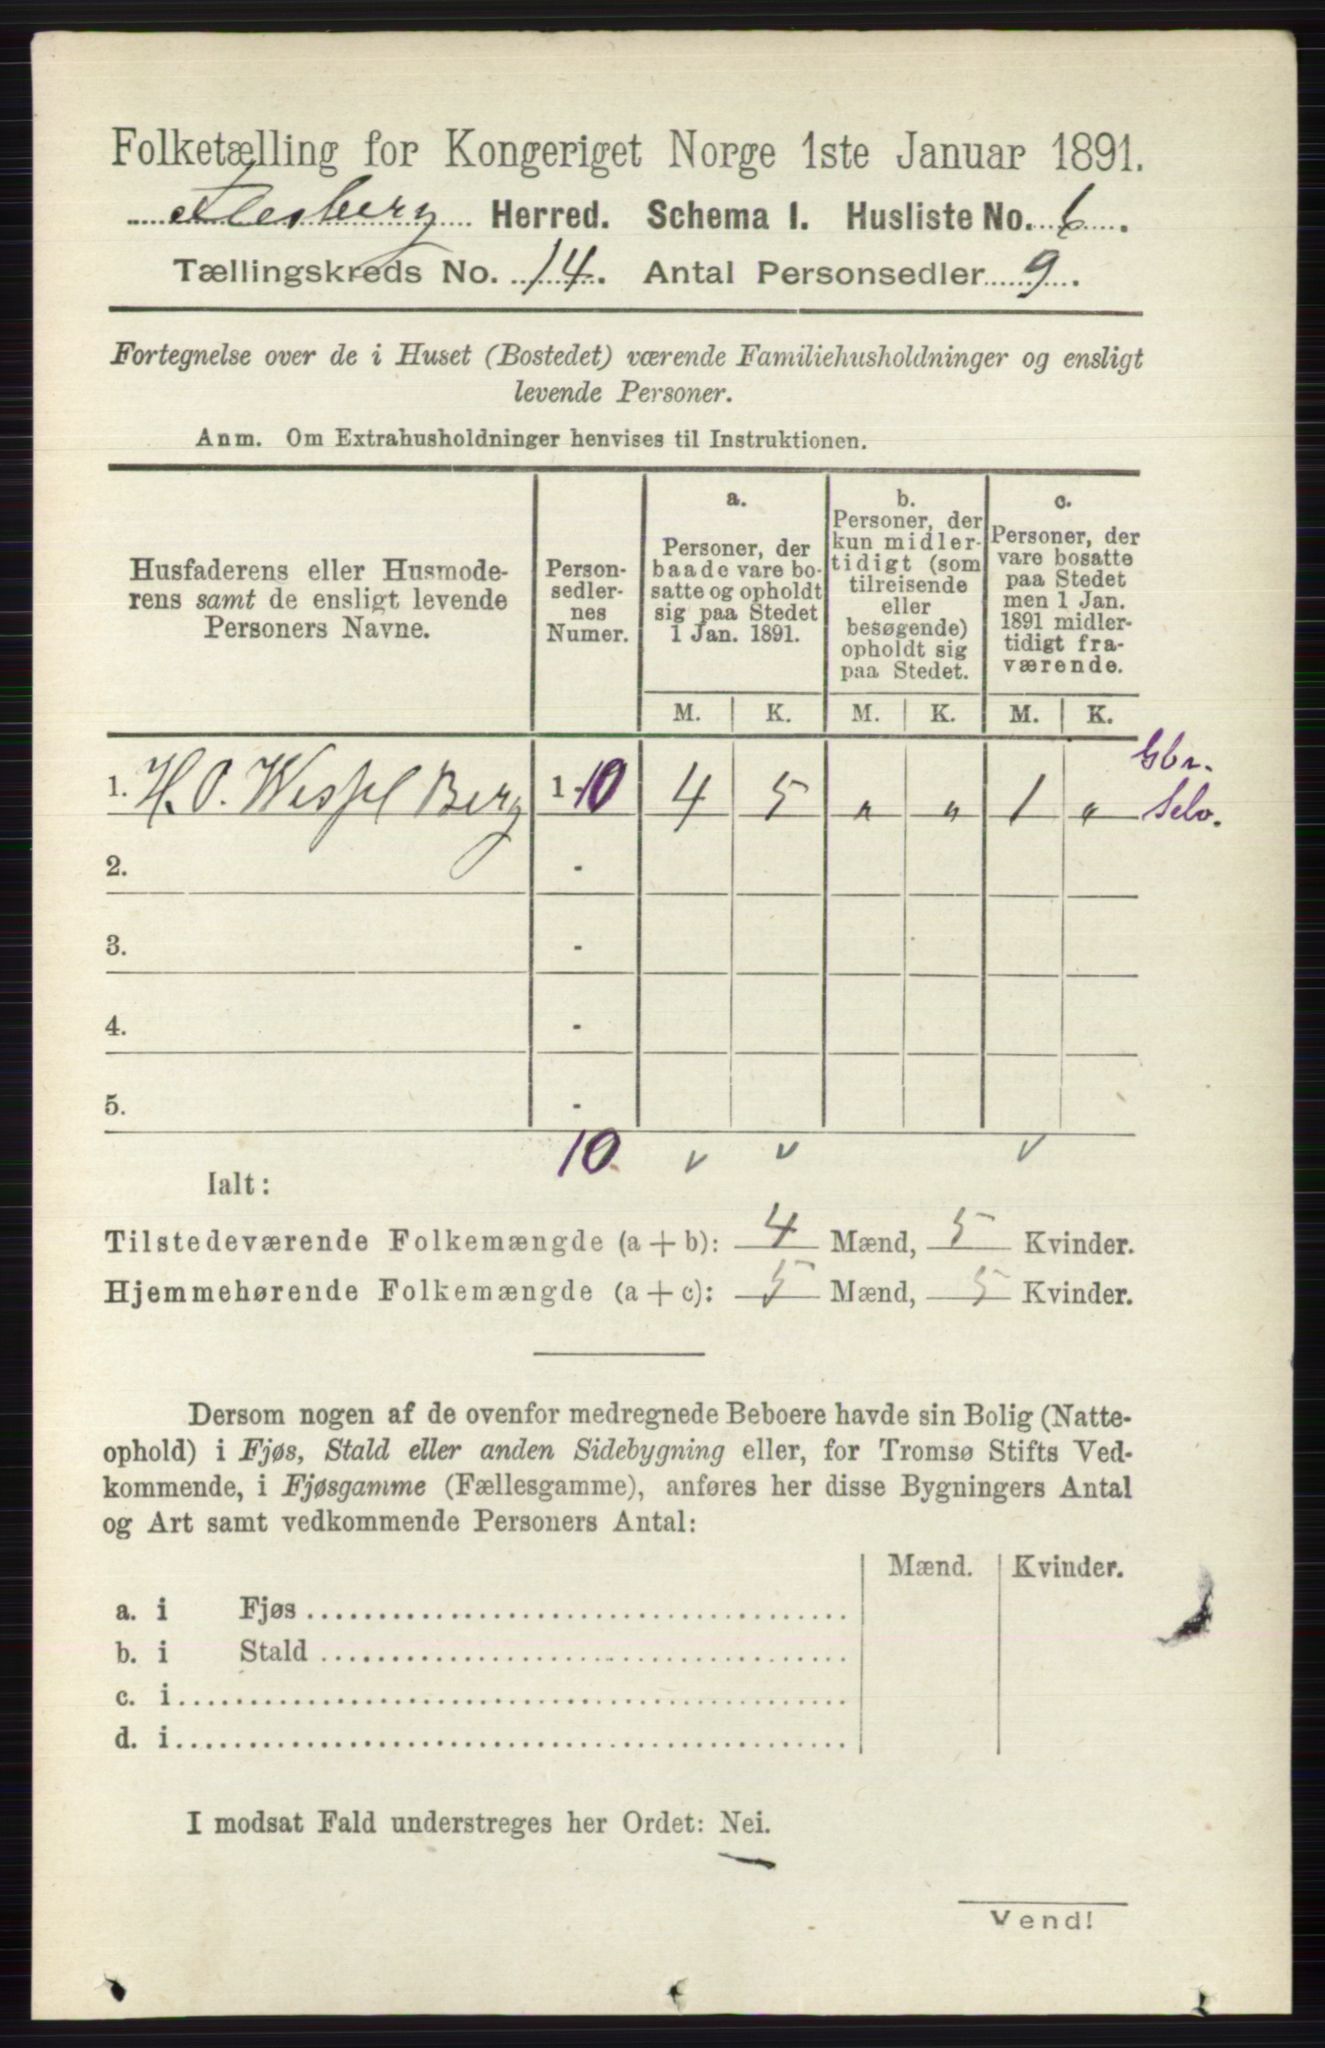 Folketælling for Kongeriget Norge 1ste Januar 1891.
Flesberg Herred. Schema I. Husliste No. 6.
Tællingskreds No. 14. Antal Personsedler 9.
Fortegnelse over de i Huset (Bostedet) værende Familiehusholdninger og ensligt
levende Personer.
Anm. Om Extrahusholdninger henvises til Instruktionen.
Husfaderens eller Husmode-
rens samt de ensligt levende
Personers Navne.
Person-
sedler-
nes
Numer.
a.
Personer, der
baade vare bo-
satte og opholdt
sig paa Stedet
1 Jan. 1891.
b.
Personer, der
kun midler-
tidigt (som
tilreisende
eller
besøgende)
opholdt sig
paa Stedet.
c.
Personer, der
vare bosatte
paa Stedet
men 1 Jan.
1891 midler-
tidigt fra-
værende.
M. K. M. K. M. K.
Gbr.
1. H. O. Wessel Berg 1-10 4 5 " " 1 " Selv.
2. -
3. -
4. -
5. -
10 v v v
Ialt:
Tilstedeværende Folkemængde (a + b): 4 Mænd, 5 Kvinder.
Hjemmehørende Folkemængde (a + c): 5 Mænd, 5 Kvinder.
Dersom nogen af de ovenfor medregnede Beboere havde sin Bolig (Natte-
ophold) i Fjøs, Stald eller anden Sidebygning eller, for Tromsø Stifts Ved-
kommende, i Fjøsgamme (Fællesgamme), anføres her disse Bygningers Antal
og Art samt vedkommende Personers Antal:
Mænd. Kvinder.
a. i Fjøs
b. i Stald
c. i
d. i
I modsat Fald understreges her Ordet: Nei.
Vend!